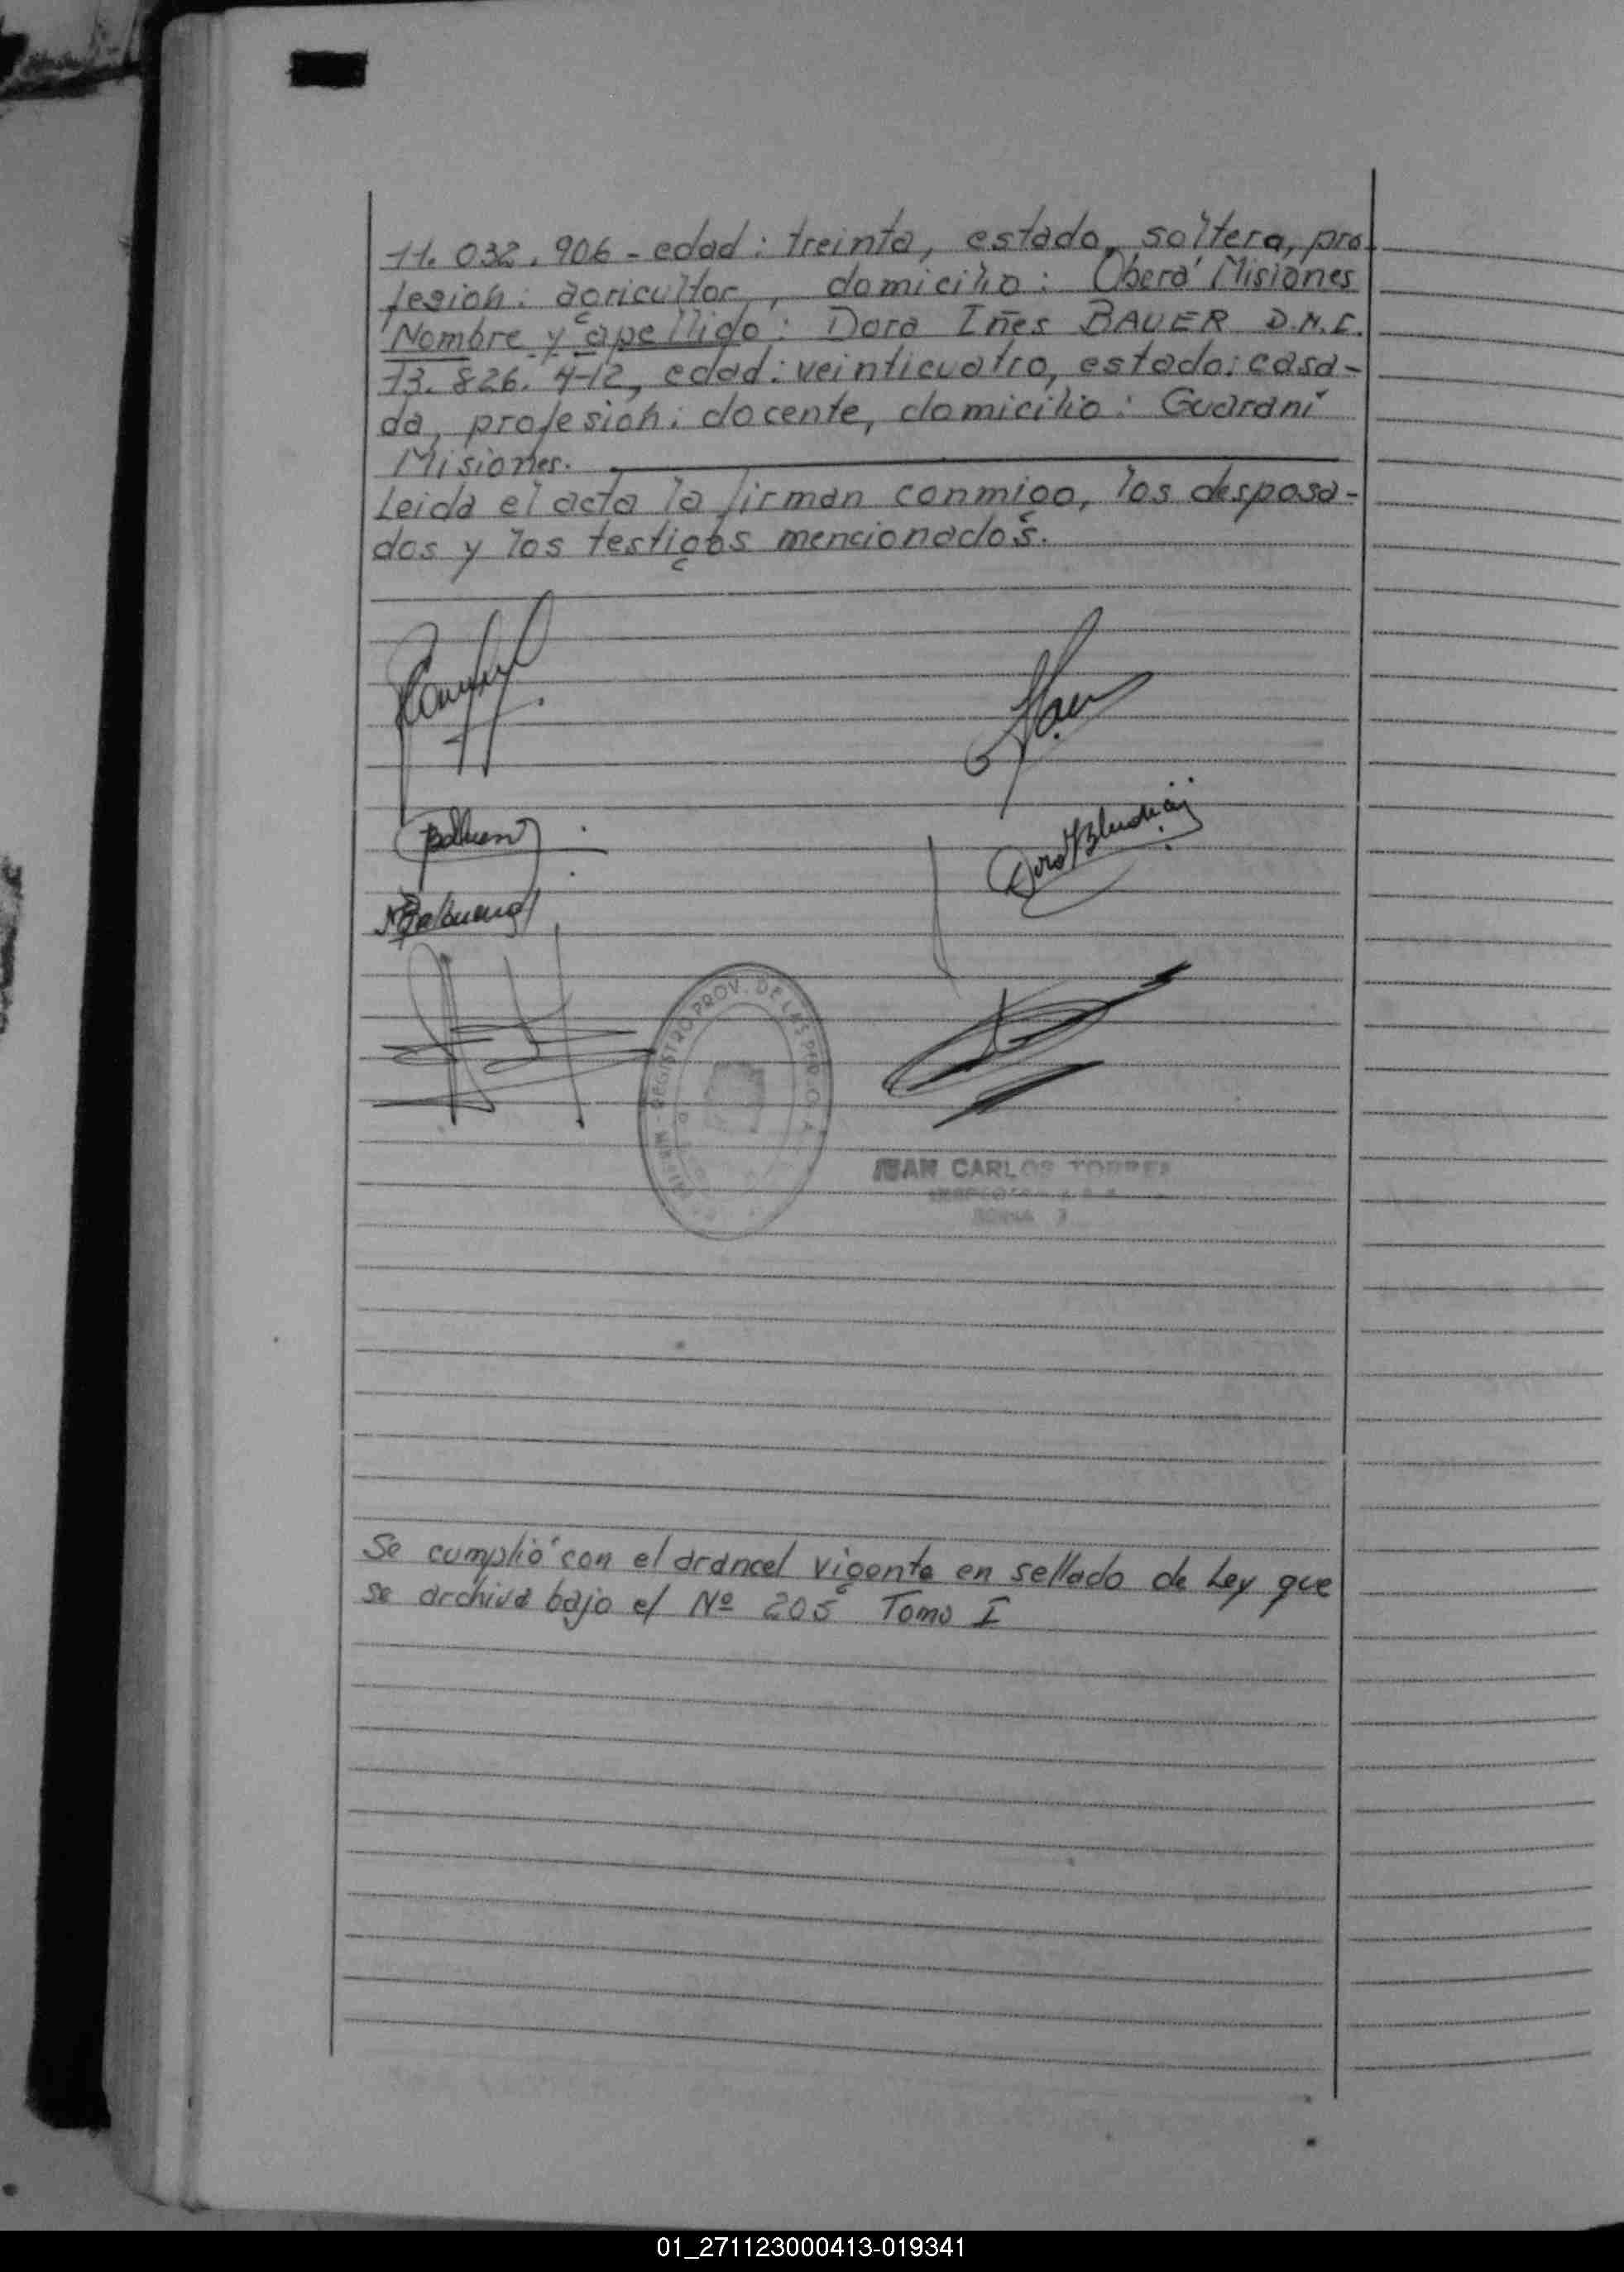 11.032.906 - edad: treinta, estado, soltera, pro
fesion: agricultor, domicilio: Oberá Misiones
Nombre y apellido: Dora Iñes BAUER D.N.I.
13.826.412, edad: veinticuatro, estado: casa-
da, profesion: docente, domicilio: Guaraní
Misiones.
Leida el acta la firman conmigo, los desposa-
dos y los testigos mencionados.
REGISTRO PROV. DE LAS PER
JUAN CARLOS TORRES
Se cumplió con el arancel vigente en sellado de Ley que
se archiva bajo el Nº 205 Tomo I
01_271123000413-019341